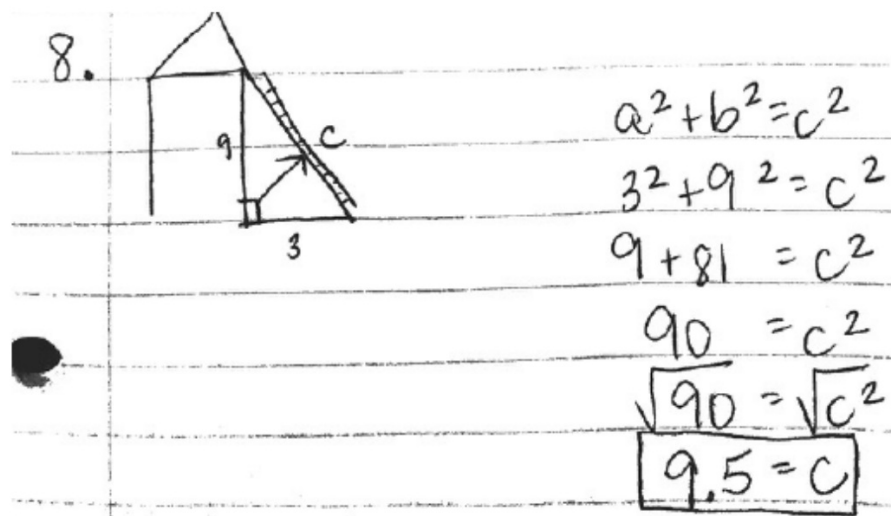 8.
9
c
3
a²+b²=c²
3²+9²=c²
9+81 = c²
90 = c²
√90 = √c²
9.5 = c